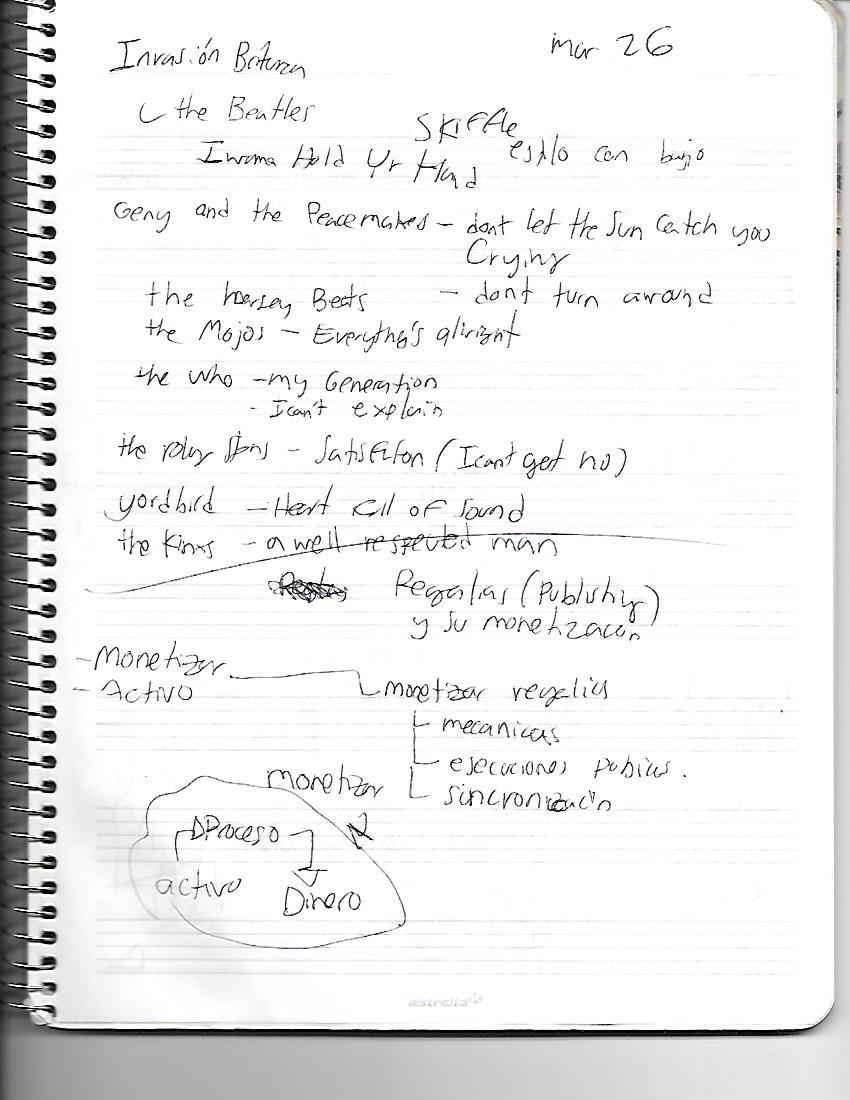 mar 26
Invasión Britanica
the Beatles
Skiffle
I wanna Hold Yr Hand estilo con bajo
Gerry and the Peacemakes - dont let the Sun Catch you
Crying
the hersey Beats - dont turn around
the Mojos - Everything's allright
the Who - my Generation
- I can't explain
the rolling Stons - Satisfiton (I cant get no)
yordbird - Heart Full of Sound
the Kinks - a well respected man
Regalias (Publishing)
y su monetización
- Monetizar
- Activo
monetizar regalias
mecanicas
ejecuciones publicas.
sincronización
monetizar
Proceso
activo
Dinero
estrella